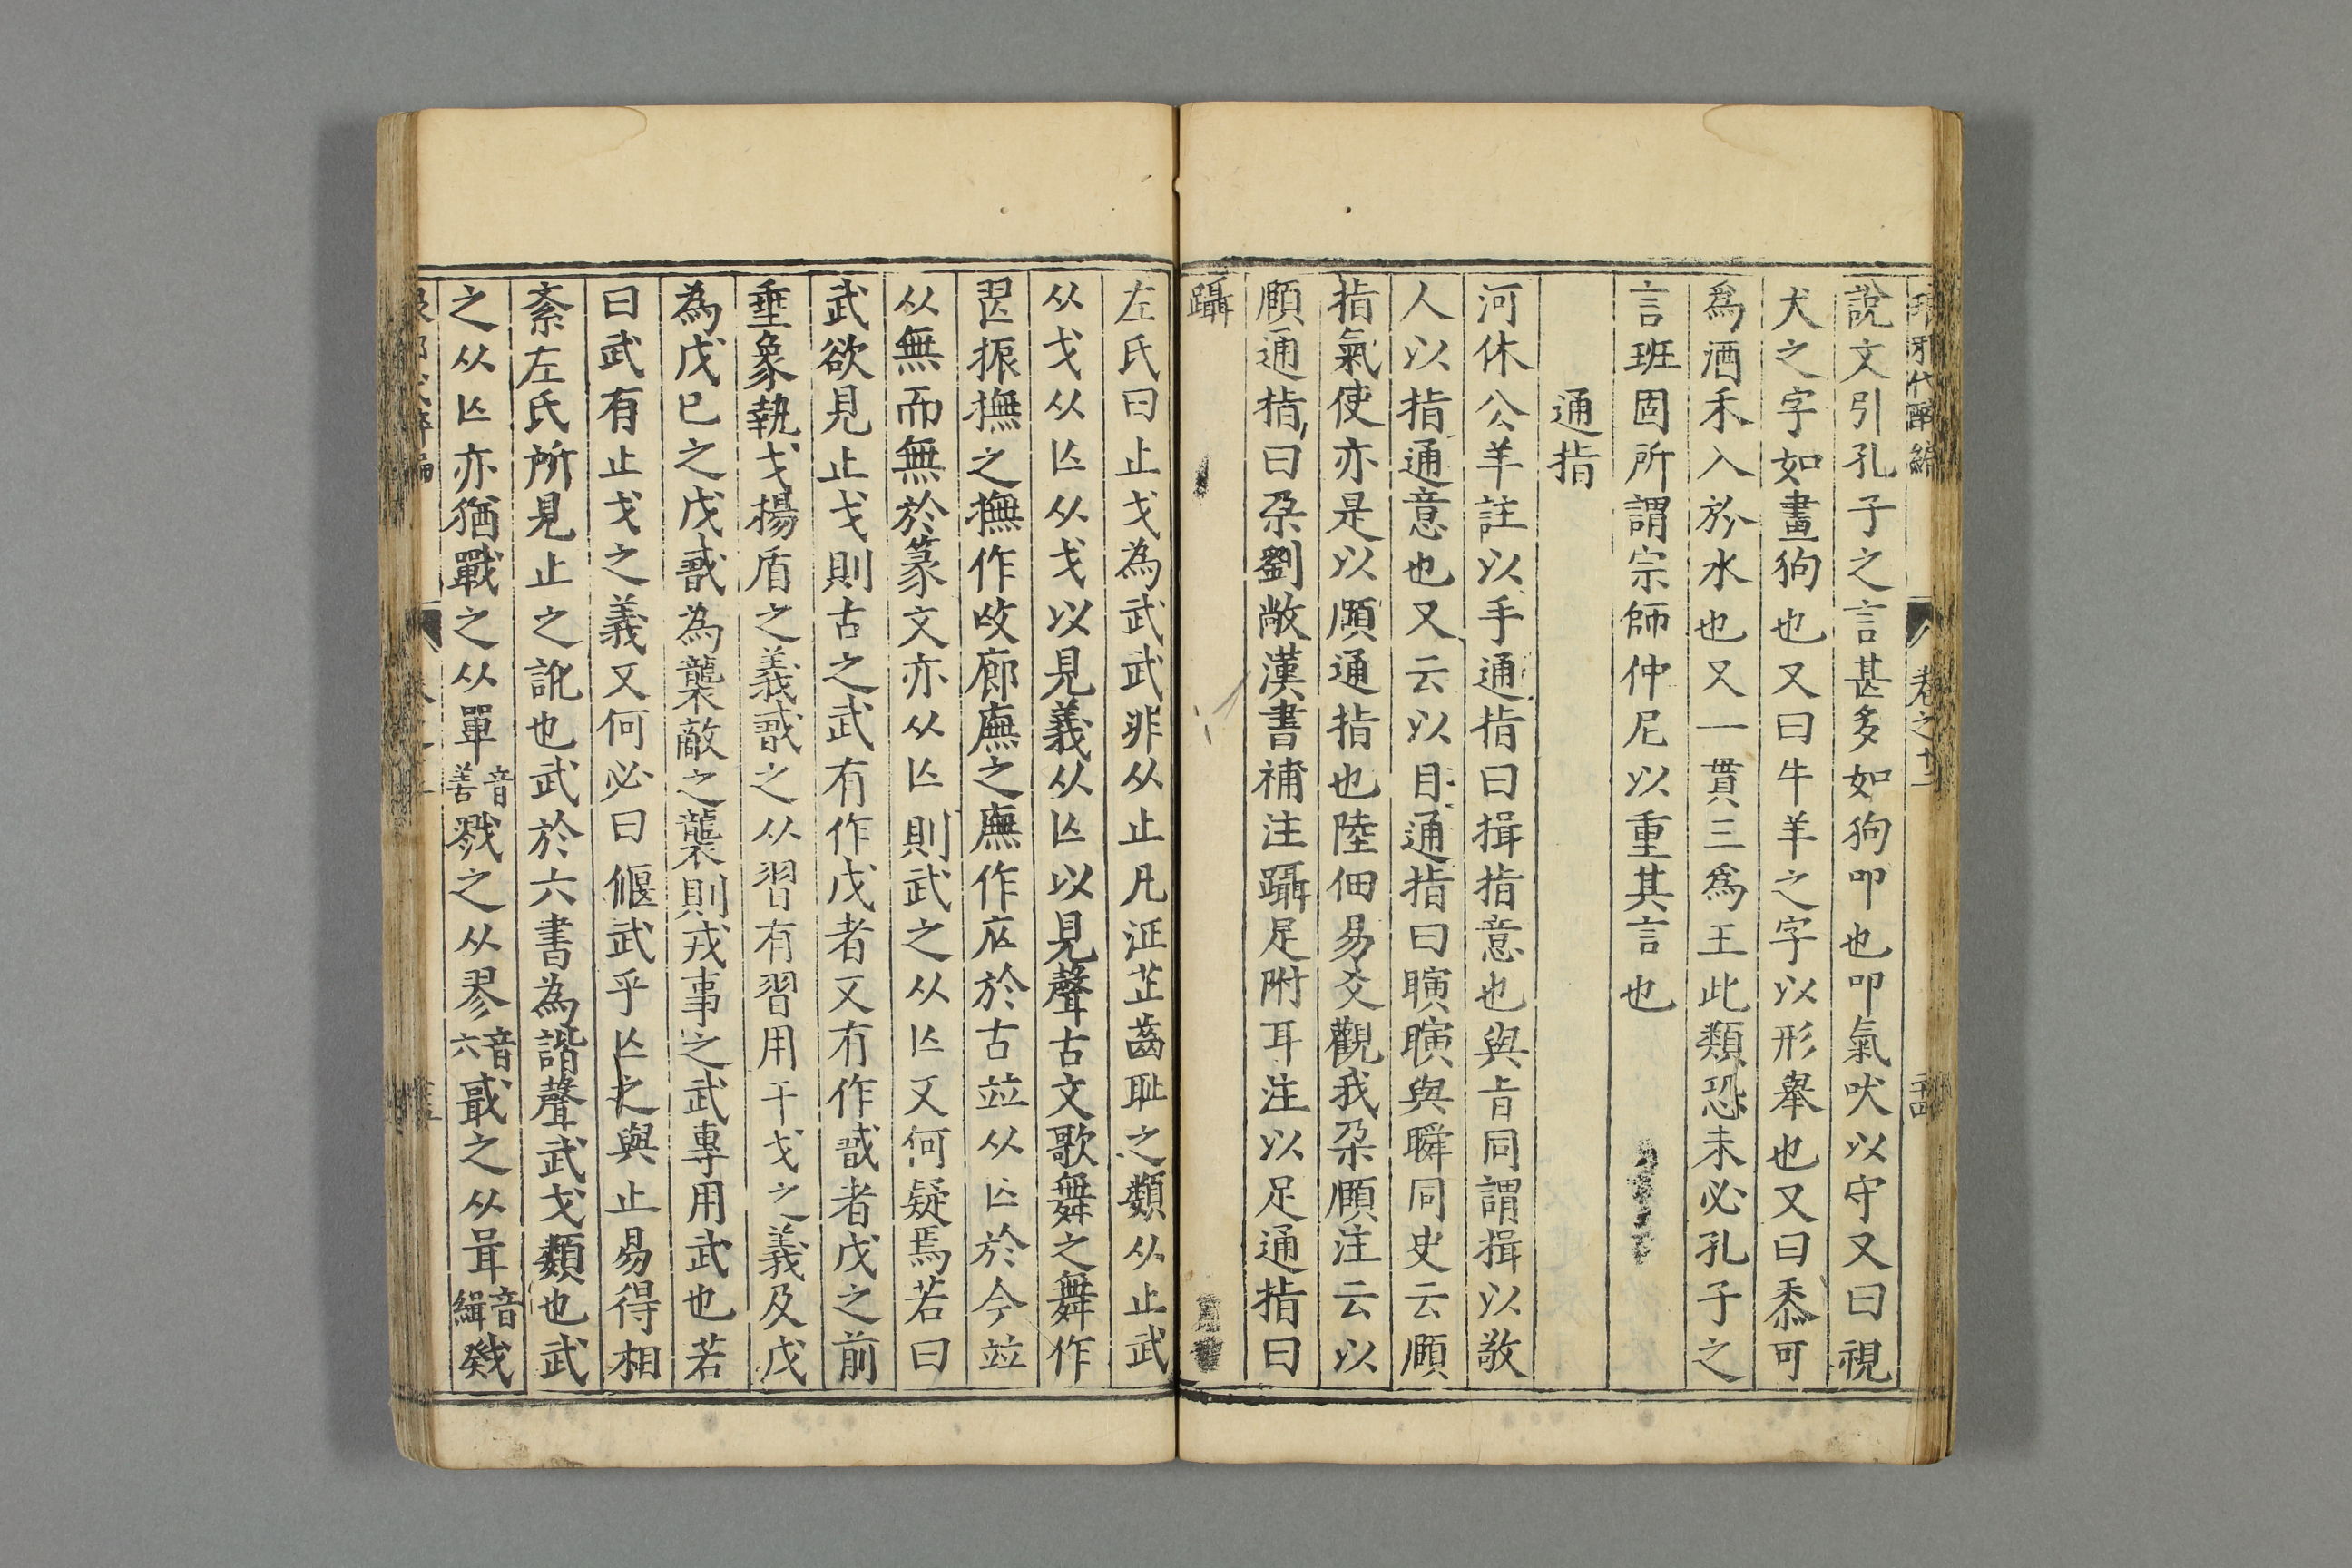 瑯邪代醉編
卷之十二
說文引孔子之言甚多如狗叩也叩氣吠以守又曰視
犬之字如畫狗也又曰牛羊之字以形舉也又曰黍可
爲酒禾入於水也又一貫三爲王此類恐未必孔子之
言班固所謂宗師仲尼以重其言也
通指
河休公羊註以手通指曰揖指意也與旨同謂揖以敬
人以指通意也又云以目通指曰瞚瞚與瞬同史云頤
指氣使亦是以頤通指也陸佃易爻觀我朶頤注云以
頤通指曰朶劉敞漢書補注躡足附耳注以足通指曰
躡
左氏曰止戈為武武非从止凡沚芷齒耻之類从止武
从戈从亾从戈以見義从亾以見聲古文歌舞之舞作
𦐀振撫之撫作㢱廊廡之廡作庂於古並从亾於今並
从無而無於篆文亦从亾則武之从亾又何疑焉若曰
武欲見止戈則古之武有作戊者又有作戠者戊之前
垂象執戈揚盾之義戠之从習有習用干戈之義及戊
為戊巳之戊戠為襲敵之襲則戎事之武專用武也若
曰武有止戈之義又何必曰偃武乎亾之與止易得相
紊左氏所見止之訛也武於六書為諧聲武戈類也武
之从亾亦猶戰之从單音善戮之从翏音六戢之从咠音緝戣